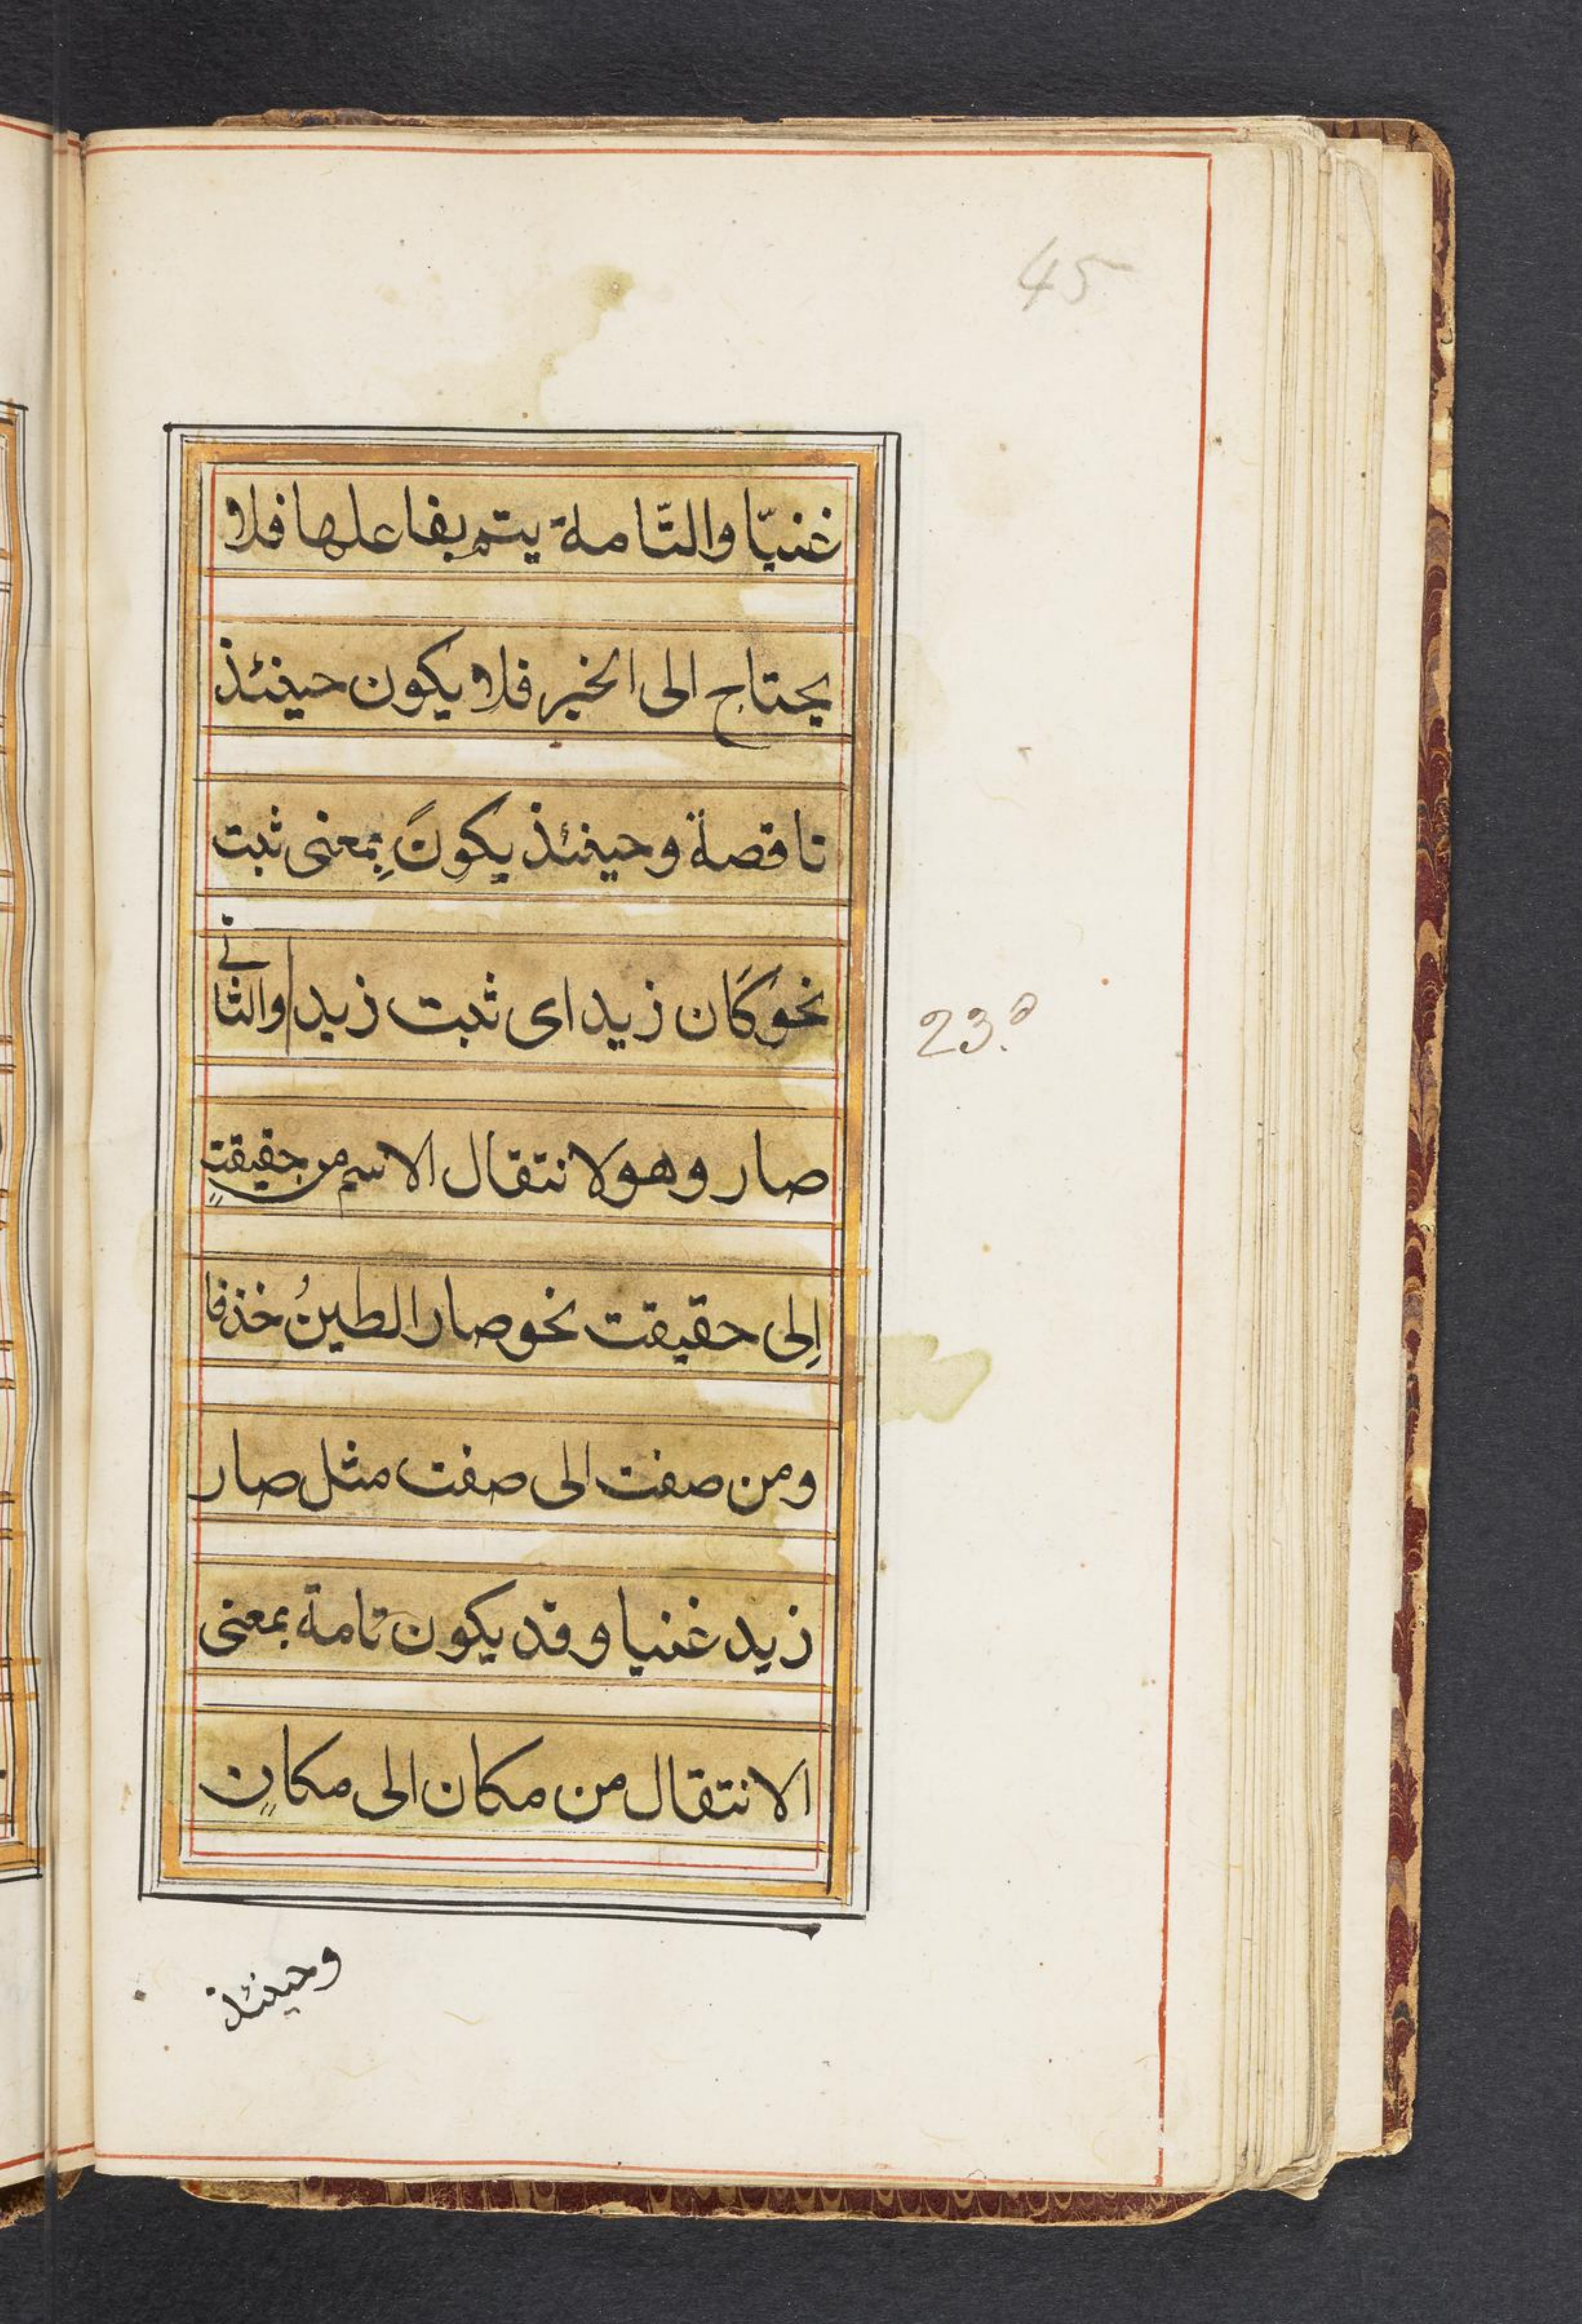 45
غنيّا والتّاملة يتم بفاعلها فلا
يحتاج الى الخبر فلا يكون حينئذ
ناقصة وحينئذ يكونَ بِمعنى ثبت
نحو كان زيد اى ثبت زيد والثانى
23.a
صار وهو لانتقال الاسم من حقيقتٍ
اِلى حقيقت نحو صار الطينُ خذفا
ومن صفت الى صفت مثل صار
زيد غنيا وقد يكون تامة بمعنى
الانتقال من مكان الى مكانٍ
وحينئذ